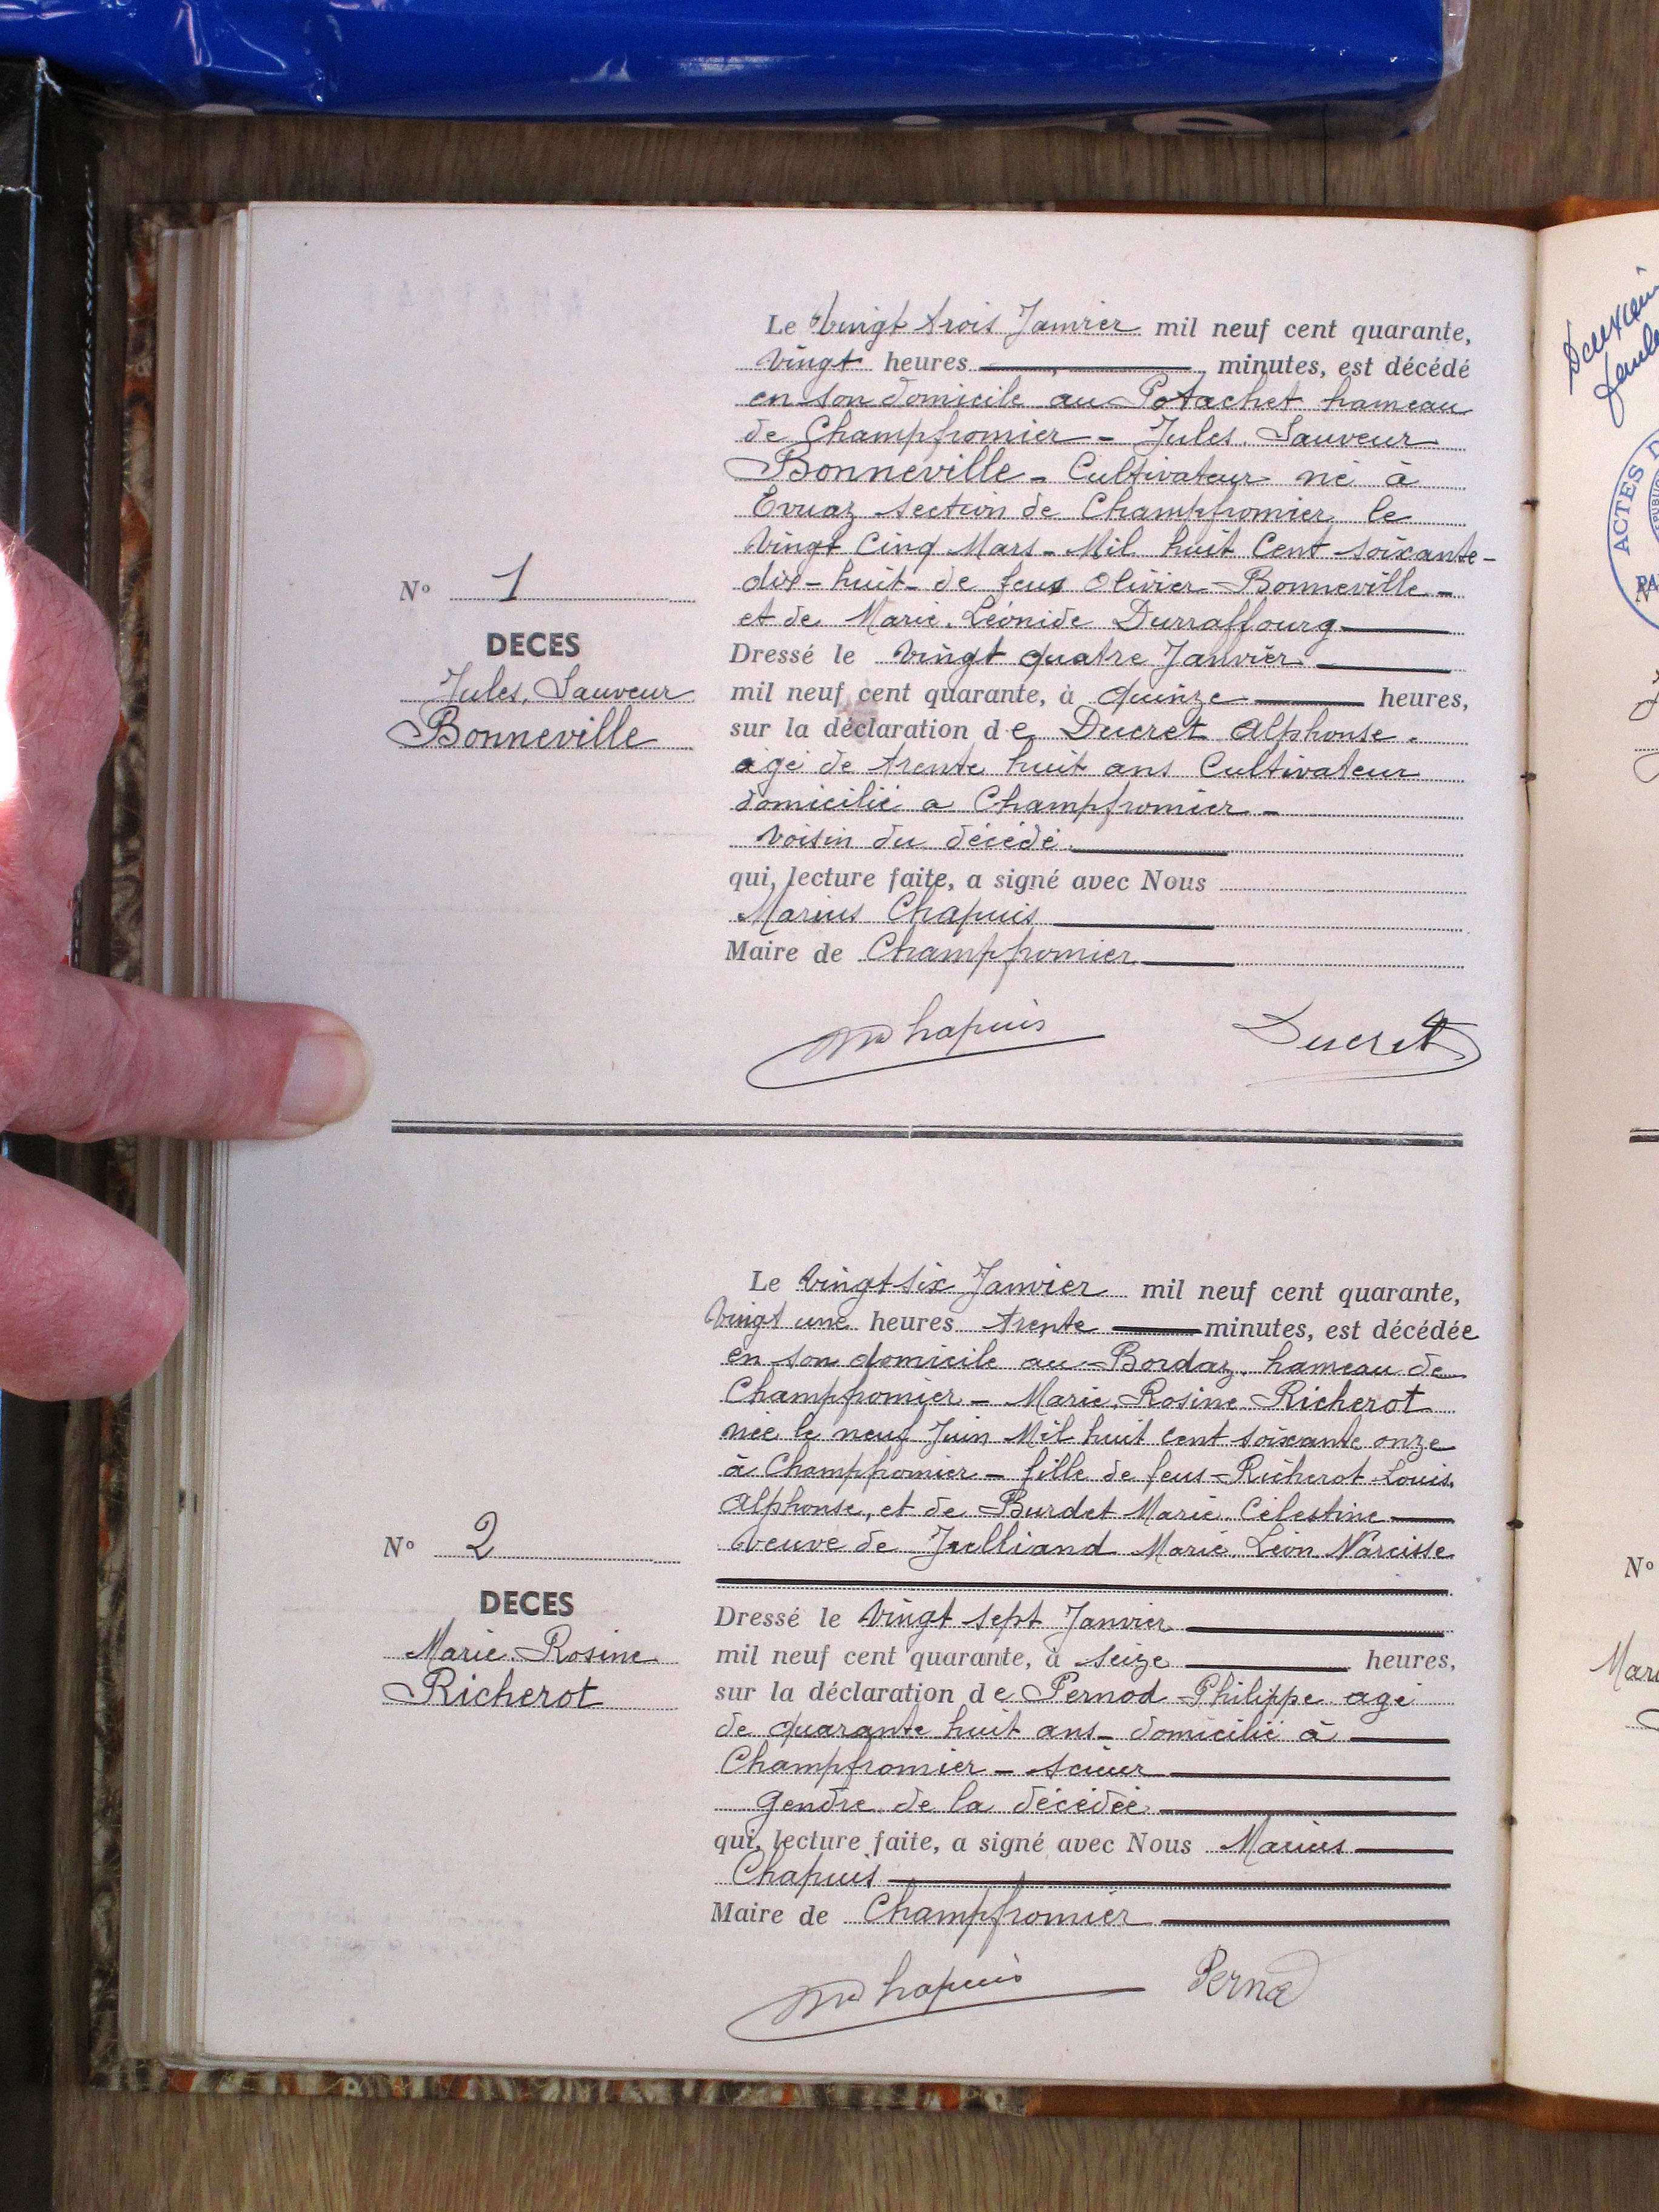 Le Vingt trois Janvier mil neuf cent quarante,
Vingt heures minutes, est décédé
en son domicile au Potachet hameau
de Champfromier - Jules, Sauveur
Bonneville - Cultivateur né à
Evuaz section de Champfromier le
Vingt Cinq Mars - Mil huit Cent soixante-
dix-huit - de feus Olivier Bonneville -
et de Marie, Léonide Durraffourg
N° 1
DECES
Jules, Sauveur
Bonneville
Dressé le Vingt quatre Janvier
mil neuf cent quarante, à quinze heures,
sur la déclaration de Ducret Alphonse.
agé de trente huit ans Cultivateur
domicilié a Champfromier -
Voisin du décédé.
qui, lecture faite, a signé avec Nous
Marius Chapuis
Maire de Champfromier
Mchapuis Ducret
Le Vingt six Janvier mil neuf cent quarante,
Vingt une heures trente minutes, est décédée
en son domicile au Bordaz, hameau de
Champfromier - Marie, Rosine Richerot
née le neuf Juin Mil huit cent soixante onze
à Champfromier - fille de feus Richerot Louis,
Alphonse, et de Burdet Marie, Célestine
Veuve de Juilliand Marie, Léon Narcisse
N° 2
DECES
Marie, Rosine
Richerot
Dressé le Vingt sept Janvier
mil neuf cent quarante, à seize heures,
sur la déclaration de Pernod Philippe agé
de quarante huit ans - domicilié à
Champfromier - scieur
gendre de la décédée
qui, lecture faite, a signé avec Nous Marius
Chapuis
Maire de Champfromier
Mchapuis Pernod
ACTES D
N°
N°